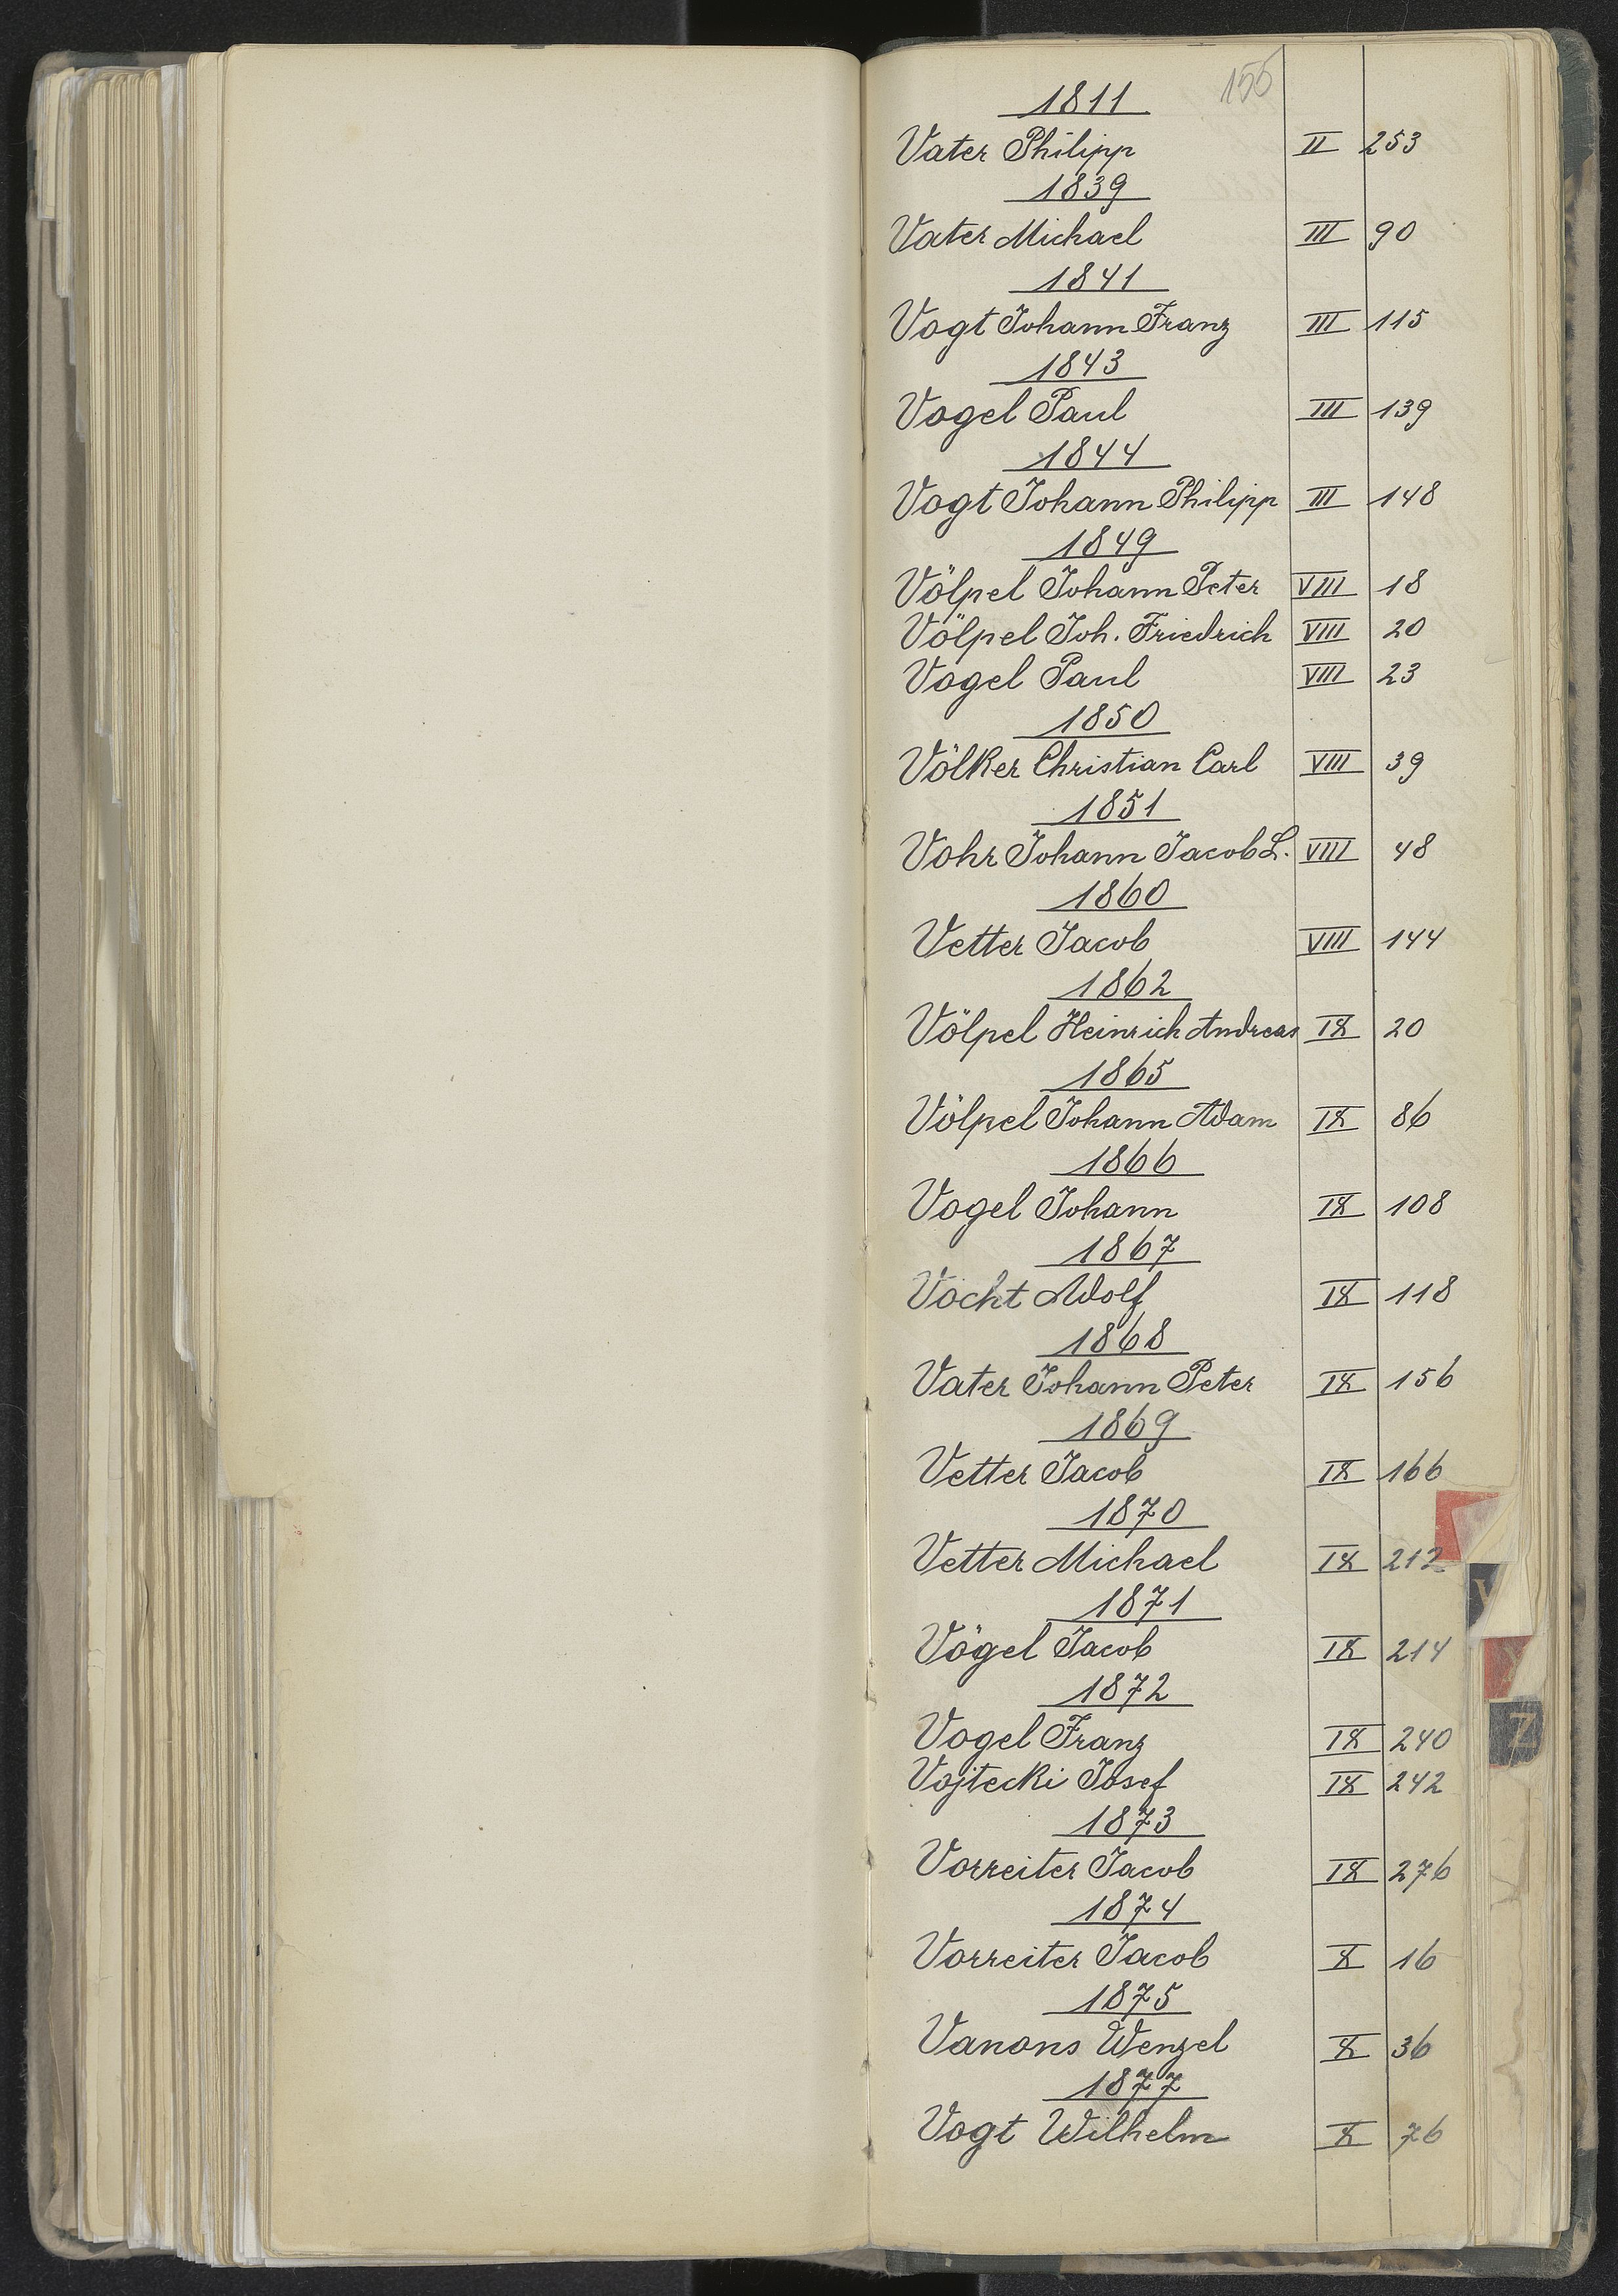 155
1811
Vater Philipp II 253
1839
Vater Michael III 90
1841
Vogt Johann Franz III 115
1843
Vogel Paul III 139
1844
Vogt Johann Philipp III 148
1849
Völpel Johann Peter VIII 18
Völpel Joh. Friedrich VIII 20
Vogel Paul VIII 23
1850
Völker Christian Carl VIII 39
1851
Vohr Johann Jacob L. VIII 48
1860
Vetter Jacob VIII 144
1862
Völpel Heinrich Andreas IX 20
1865
Völpel Johann Adam IX 86
1866
Vogel Johann IX 108
1867
Vocht Adolf IX 118
1868
Vater Johann Peter IX 156
1869
Vetter Jacob IX 166
1870
Vetter Michael IX 212
1871
Vögel Jacob IX 214
1872
Vogel Franz IX 240
Vojtecki Josef IX 242
1873
Vorreiter Jacob IX 276
1874
Vorreiter Jacob X 16
1875
Vanons Wenzel X 36
1877
Vogt Wilhelm X 76
Z